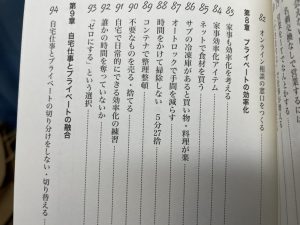 82 オンライン相談の窓口をつくる
第8章 プライベートの効率化
83 家事も効率化を考える
84 家事効率化アイテム
85 ネットで食材を買う
86 サブの冷凍庫があると買い物・料理が楽
87 オートロックで手間を減らす
88 時間をかけて掃除しない 5分27倍
89 コンテナで整理整頓
90 不要なものを売る・捨てる
91 自宅で日常的にできる効率化の練習
92 誰かの時間を奪っていないか
93 「ゼロにする」という選択
第9章 自宅仕事とプライベートの融合
94 自宅仕事とプライベートの切り分けをしない・切り替える